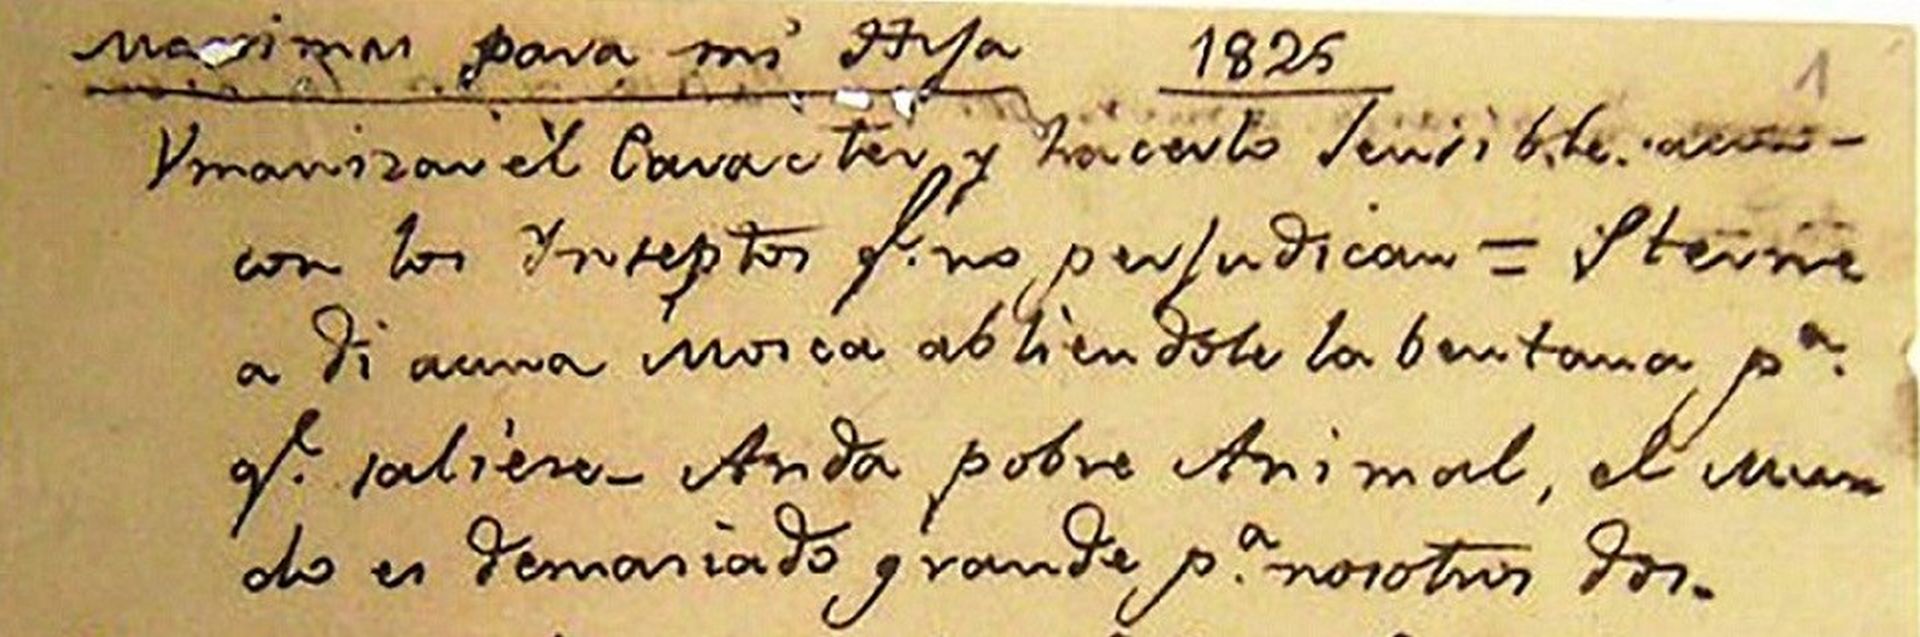 Maximas para mi Hija 1825
1
Vmanizar él Caracter, y hacerlo sensible. aun
con los Ynseptos q.e no perjudican = Sterne
a di auna Mosca abliendole la bentana p.a
q.e saliése_ Anda pobre Animal, el Mun
do es demasiado grande p.a nosotros dos.